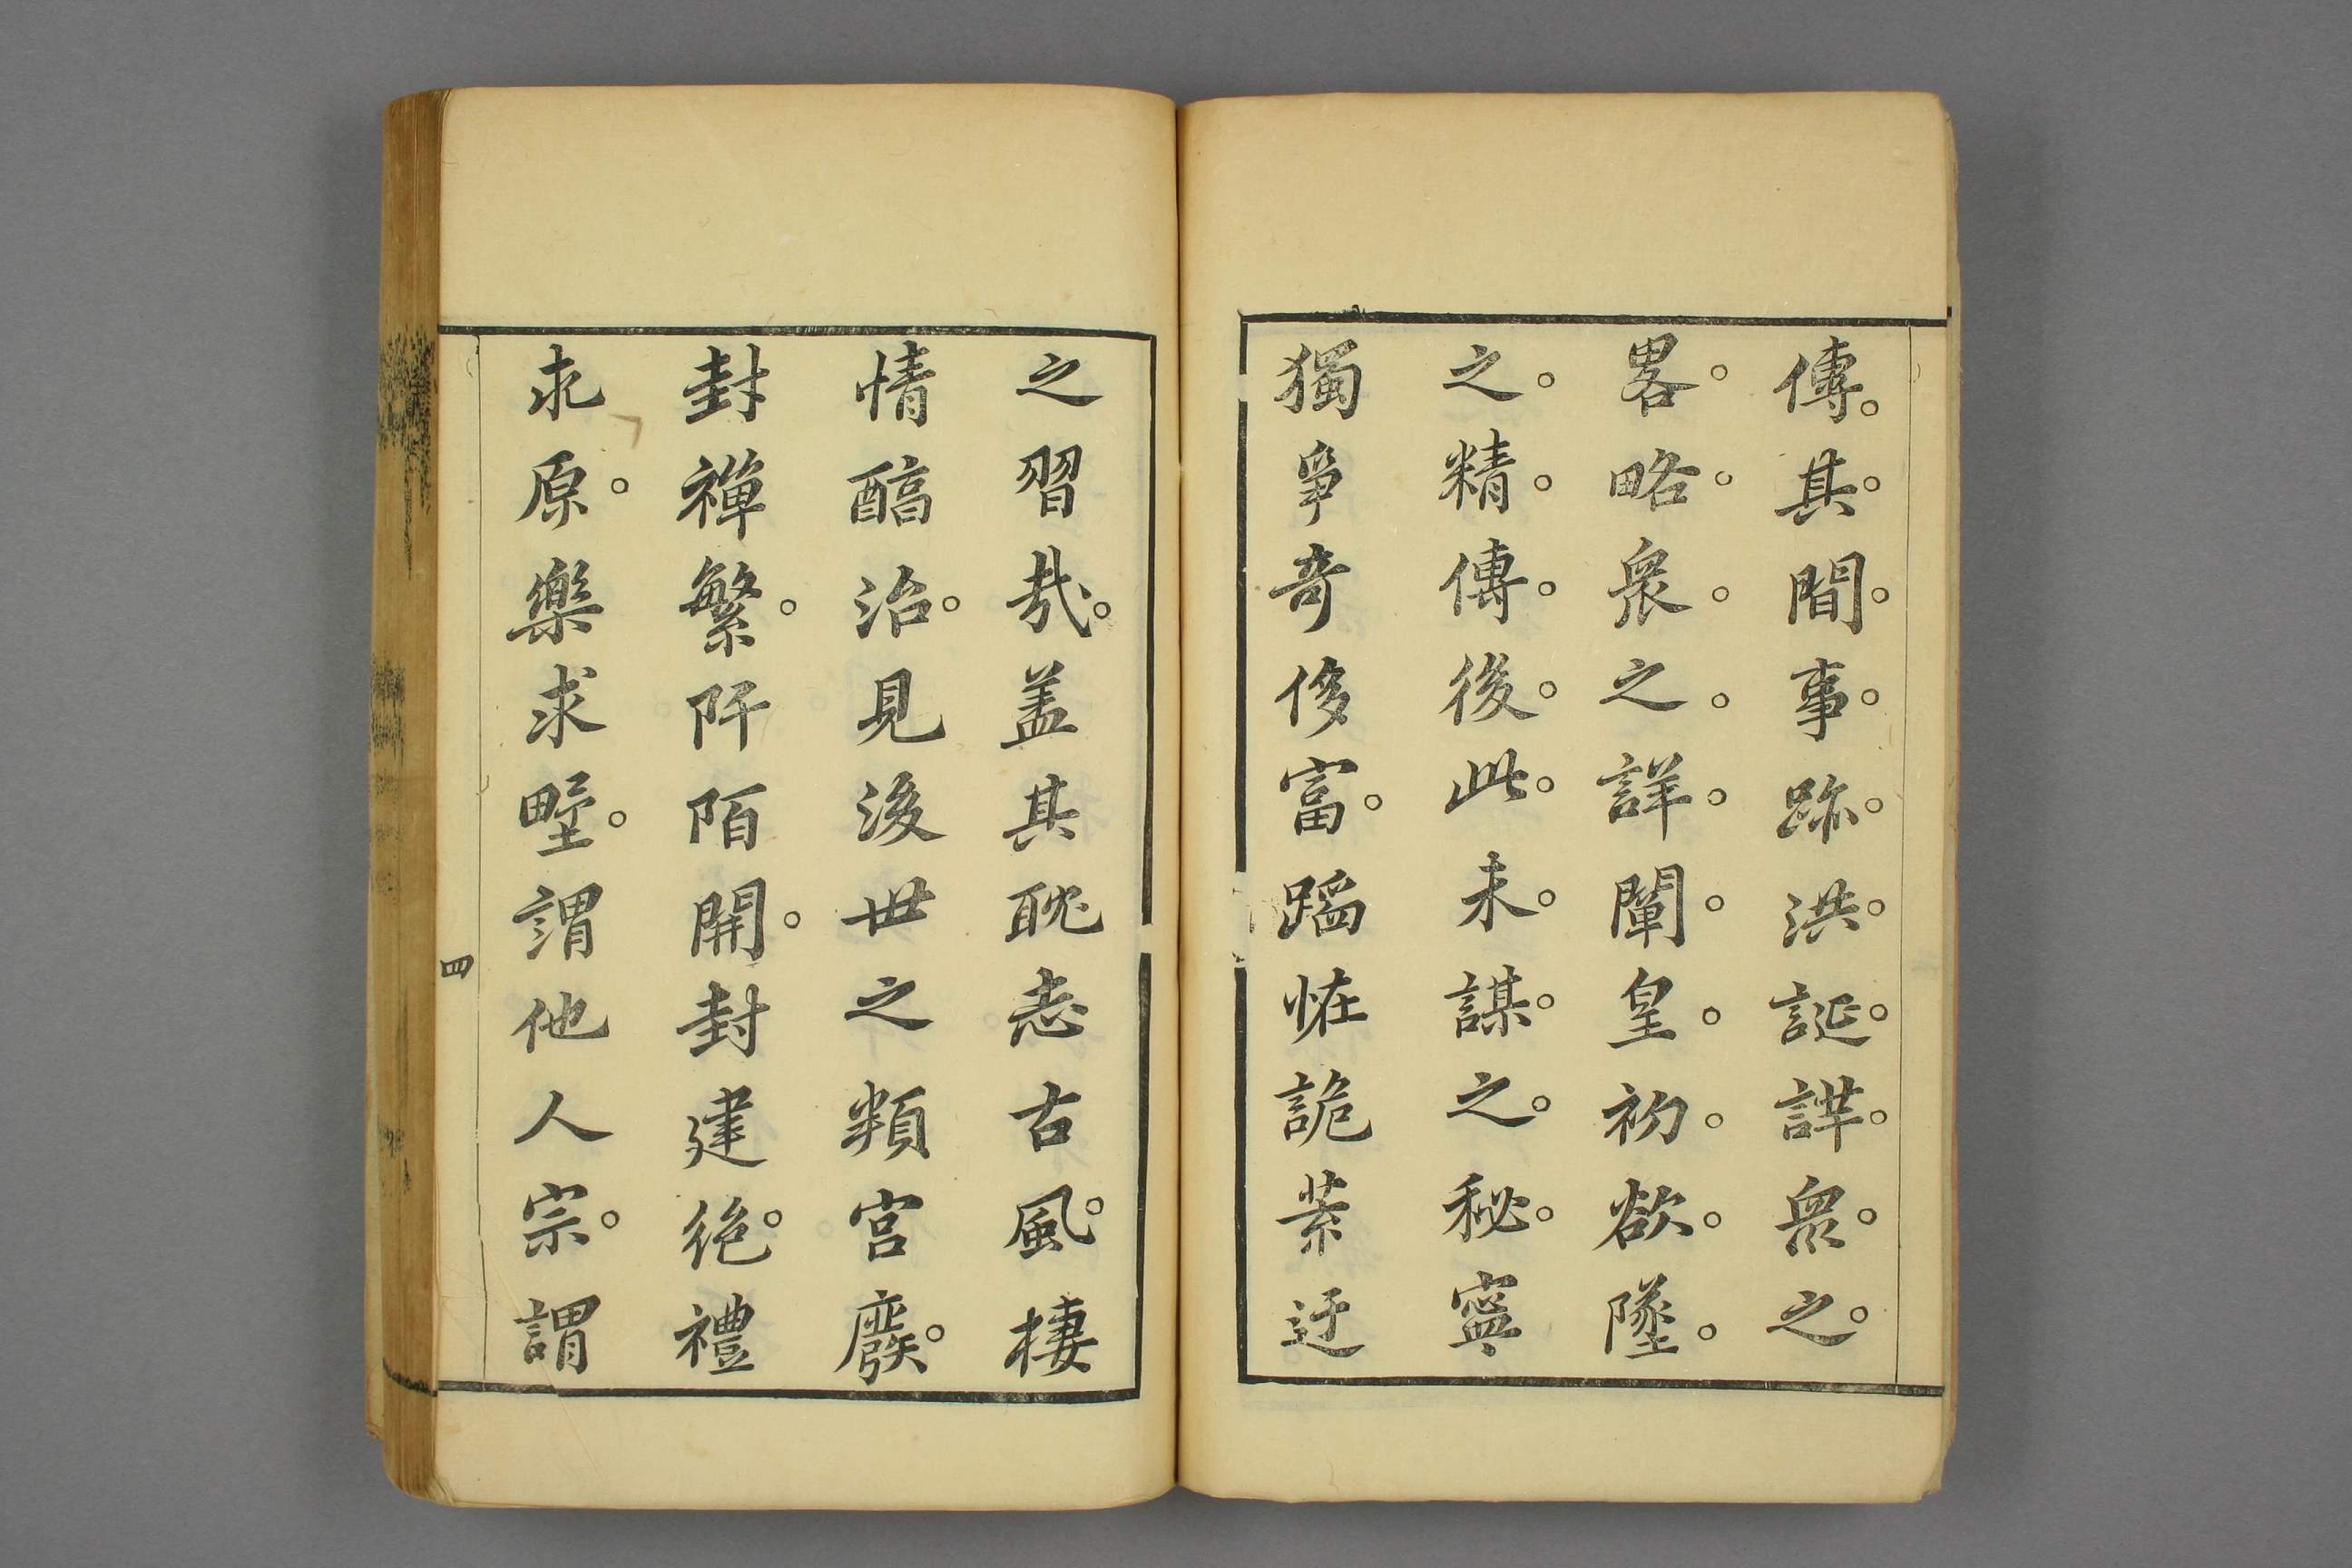 傳其間事跡洪誕譁衆之
畧略衆之詳闡皇初欲墜
之精傳後此未謀之秘寧
獨爭奇侈富蹈恠詭萦迂
之習㦲盖其耽志古風棲
情酷治見後世之類宫廢
封禅繁阡陌開封建絶禮
求原樂求野謂他人宗謂
四